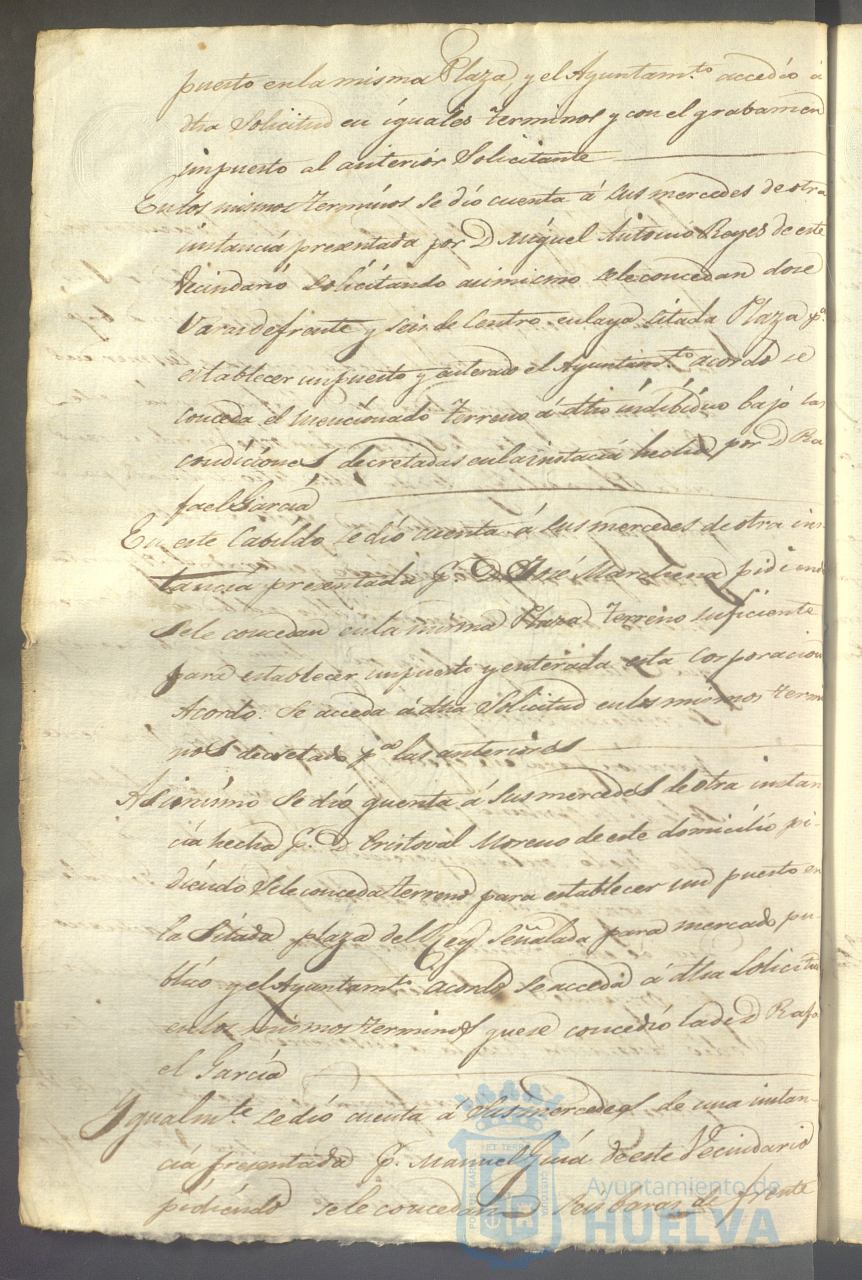 puesto en la misma Plaza, y el Ayuntam.to accedió á
dha Solicitud en iguales terminos y con el grabamen
impuesto al anterior Solicitante
En los mismos terminos se dio cuenta á sus mercedes de otra
instancia presentada por D Miguel Antonio Reyes de este
Vecindario solicitando asimismo se le concedan dose
Varas de frente y seis de Centro en laya sitada Plaza p.a
establecer un puesto y enterado el Ayuntam.to acordó se
conceda el mencionado terreno á dho indibiduo bajo las
condiciones decretadas en la instacia hecha por D Ra
fael Garcia
En este Cabildo se dio cuenta á sus mercedes de otra ins
tancia presentada p.r D José Marchena pidiendo
se le concedan en la misma Plaza terreno suficiente
para establecer un puesto y enterada esta corporacion
Acordo. Se acceda á dha Solicitud en los mismos termi
nos decretado p.a las anteriores
Asimismo se dio quenta á sus mercedes de otra instan
cia hecha p.r D Cristoval Moreno de este domicilio pi-
diendo se le conceda terreno para establecer un puesto en
la sitada plaza del Rey señalada para mercado pu
blico y el Ayuntam.to acordó se acceda á dha Solicitud
en los mismos terminos que se concedió la de D Rafa
el Garcia
Ygualm.te se dio cuenta á sus mercedes de una instan-
cia presentada p.r Manuel Guia de este Vecindario
pidiendo se le concedan seis baras de frente
Ayuntamiento de
HUELVA